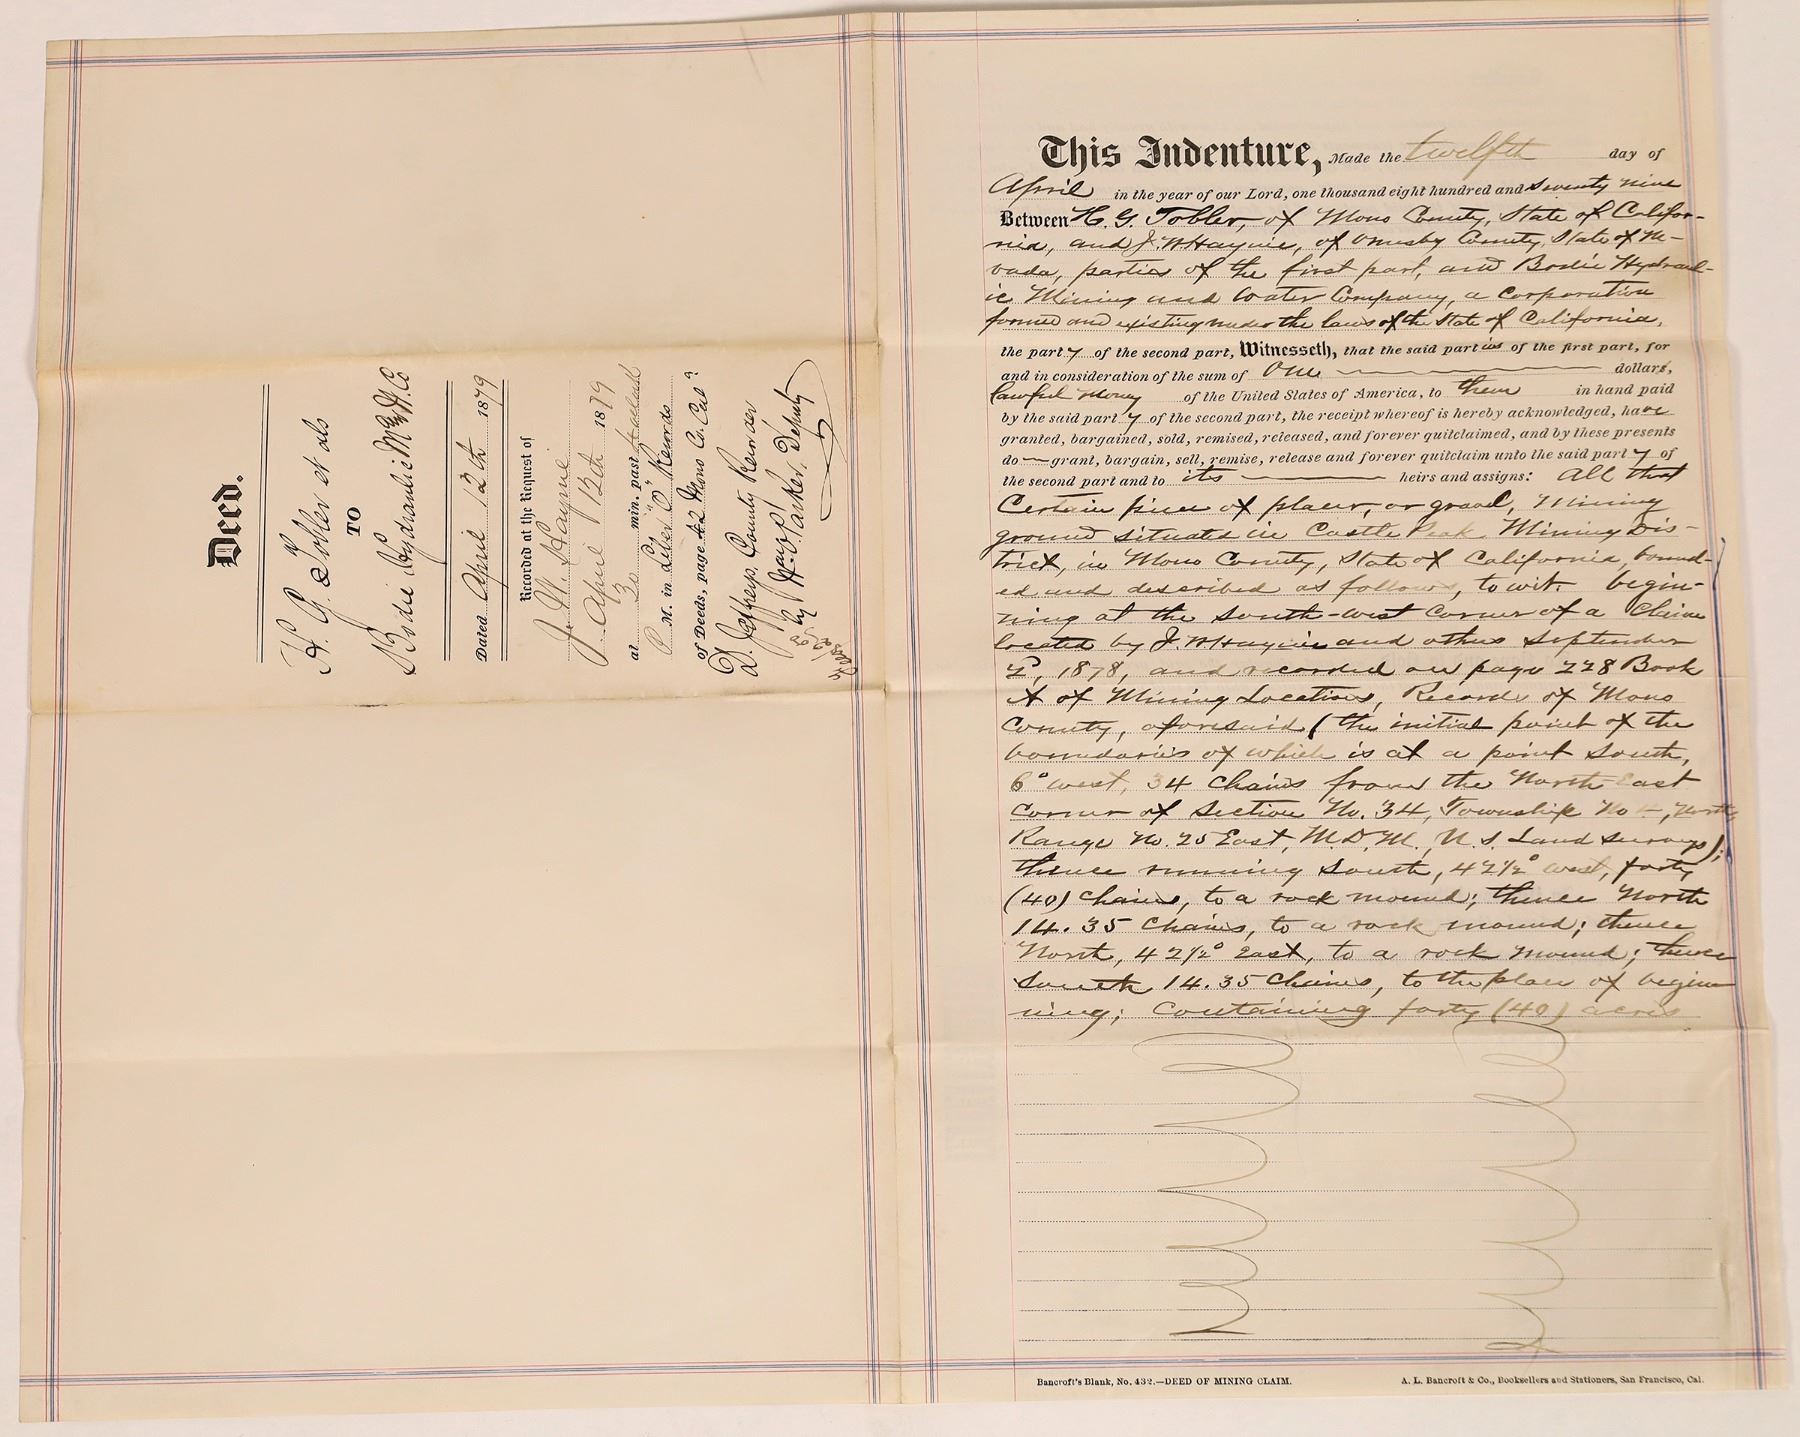 Deed.
H. G. Tobler et als
TO
Bodie Hydraulic M & W. Co
Dated April 12th 1879
Recorded at the Request of
J. W. Haynie
April 13th 1879
at 30 min. past
P. M. in Liber "O" Records
of Deeds, page 42 Mono Co. Cal"
D. Jeffreys, County Recorder
by Parker, Deputy
This Indenture, Made the twelfth day of
April in the year of our Lord, one thousand eight hundred and seventy nine
Between H. G. Tobler, of Mono County, State of Califor-
nia, and J. W Haynie, of Ormsby County, State of Ne-
vada, parties of the first part, and Bodie Hydraul-
ic Mining and Water Company, a corporation
formed and existing under the laws of the State of California,
the party of the second part, Witnesseth, that the said parties of the first part, for
and in consideration of the sum of One dollars,
lawful money of the United States of America, to them in hand paid
by the said party of the second part, the receipt whereof is hereby acknowledged, have
granted, bargained, sold, remised, released, and forever quitclaimed, and by these presents
do grant, bargain, sell, remise, release and forever quitclaim unto the said party of
the second part and to its heirs and assigns: All that
Certain piece of placer, or gravel, Mining
ground situated in Castle Peak Mining Dis-
trict, in Mono County, State of California, bound-
ed and described as follows, to wit: begin-
ning at the South-west Corner of a Claim
located by J. W Haynie and others September
2d, 1878, and recorded on page 228 Book
A of Mining Locations, Records of Mono
County, aforesaid (the initial point of the
boundaries of which is at a point South,
6° west, 34 Chains from the North-east
Corner of Section No. 34, Township No 4, North,
Range No. 25 East, M. D. M., U. S. Land survey);
thence running South, 42½° west, forty
(40) Chains, to a rock mound; thence North
14.35 Chains, to a rock mound; thence
North, 42½° East, to a rock mound; thence
South 14.35 Chains, to the place of begin
ning; Containing forty (40) acres
Bancroft's Blank, No. 432.—DEED OF MINING CLAIM.
A. L. Bancroft & Co., Booksellers and Stationers, San Francisco, Cal.